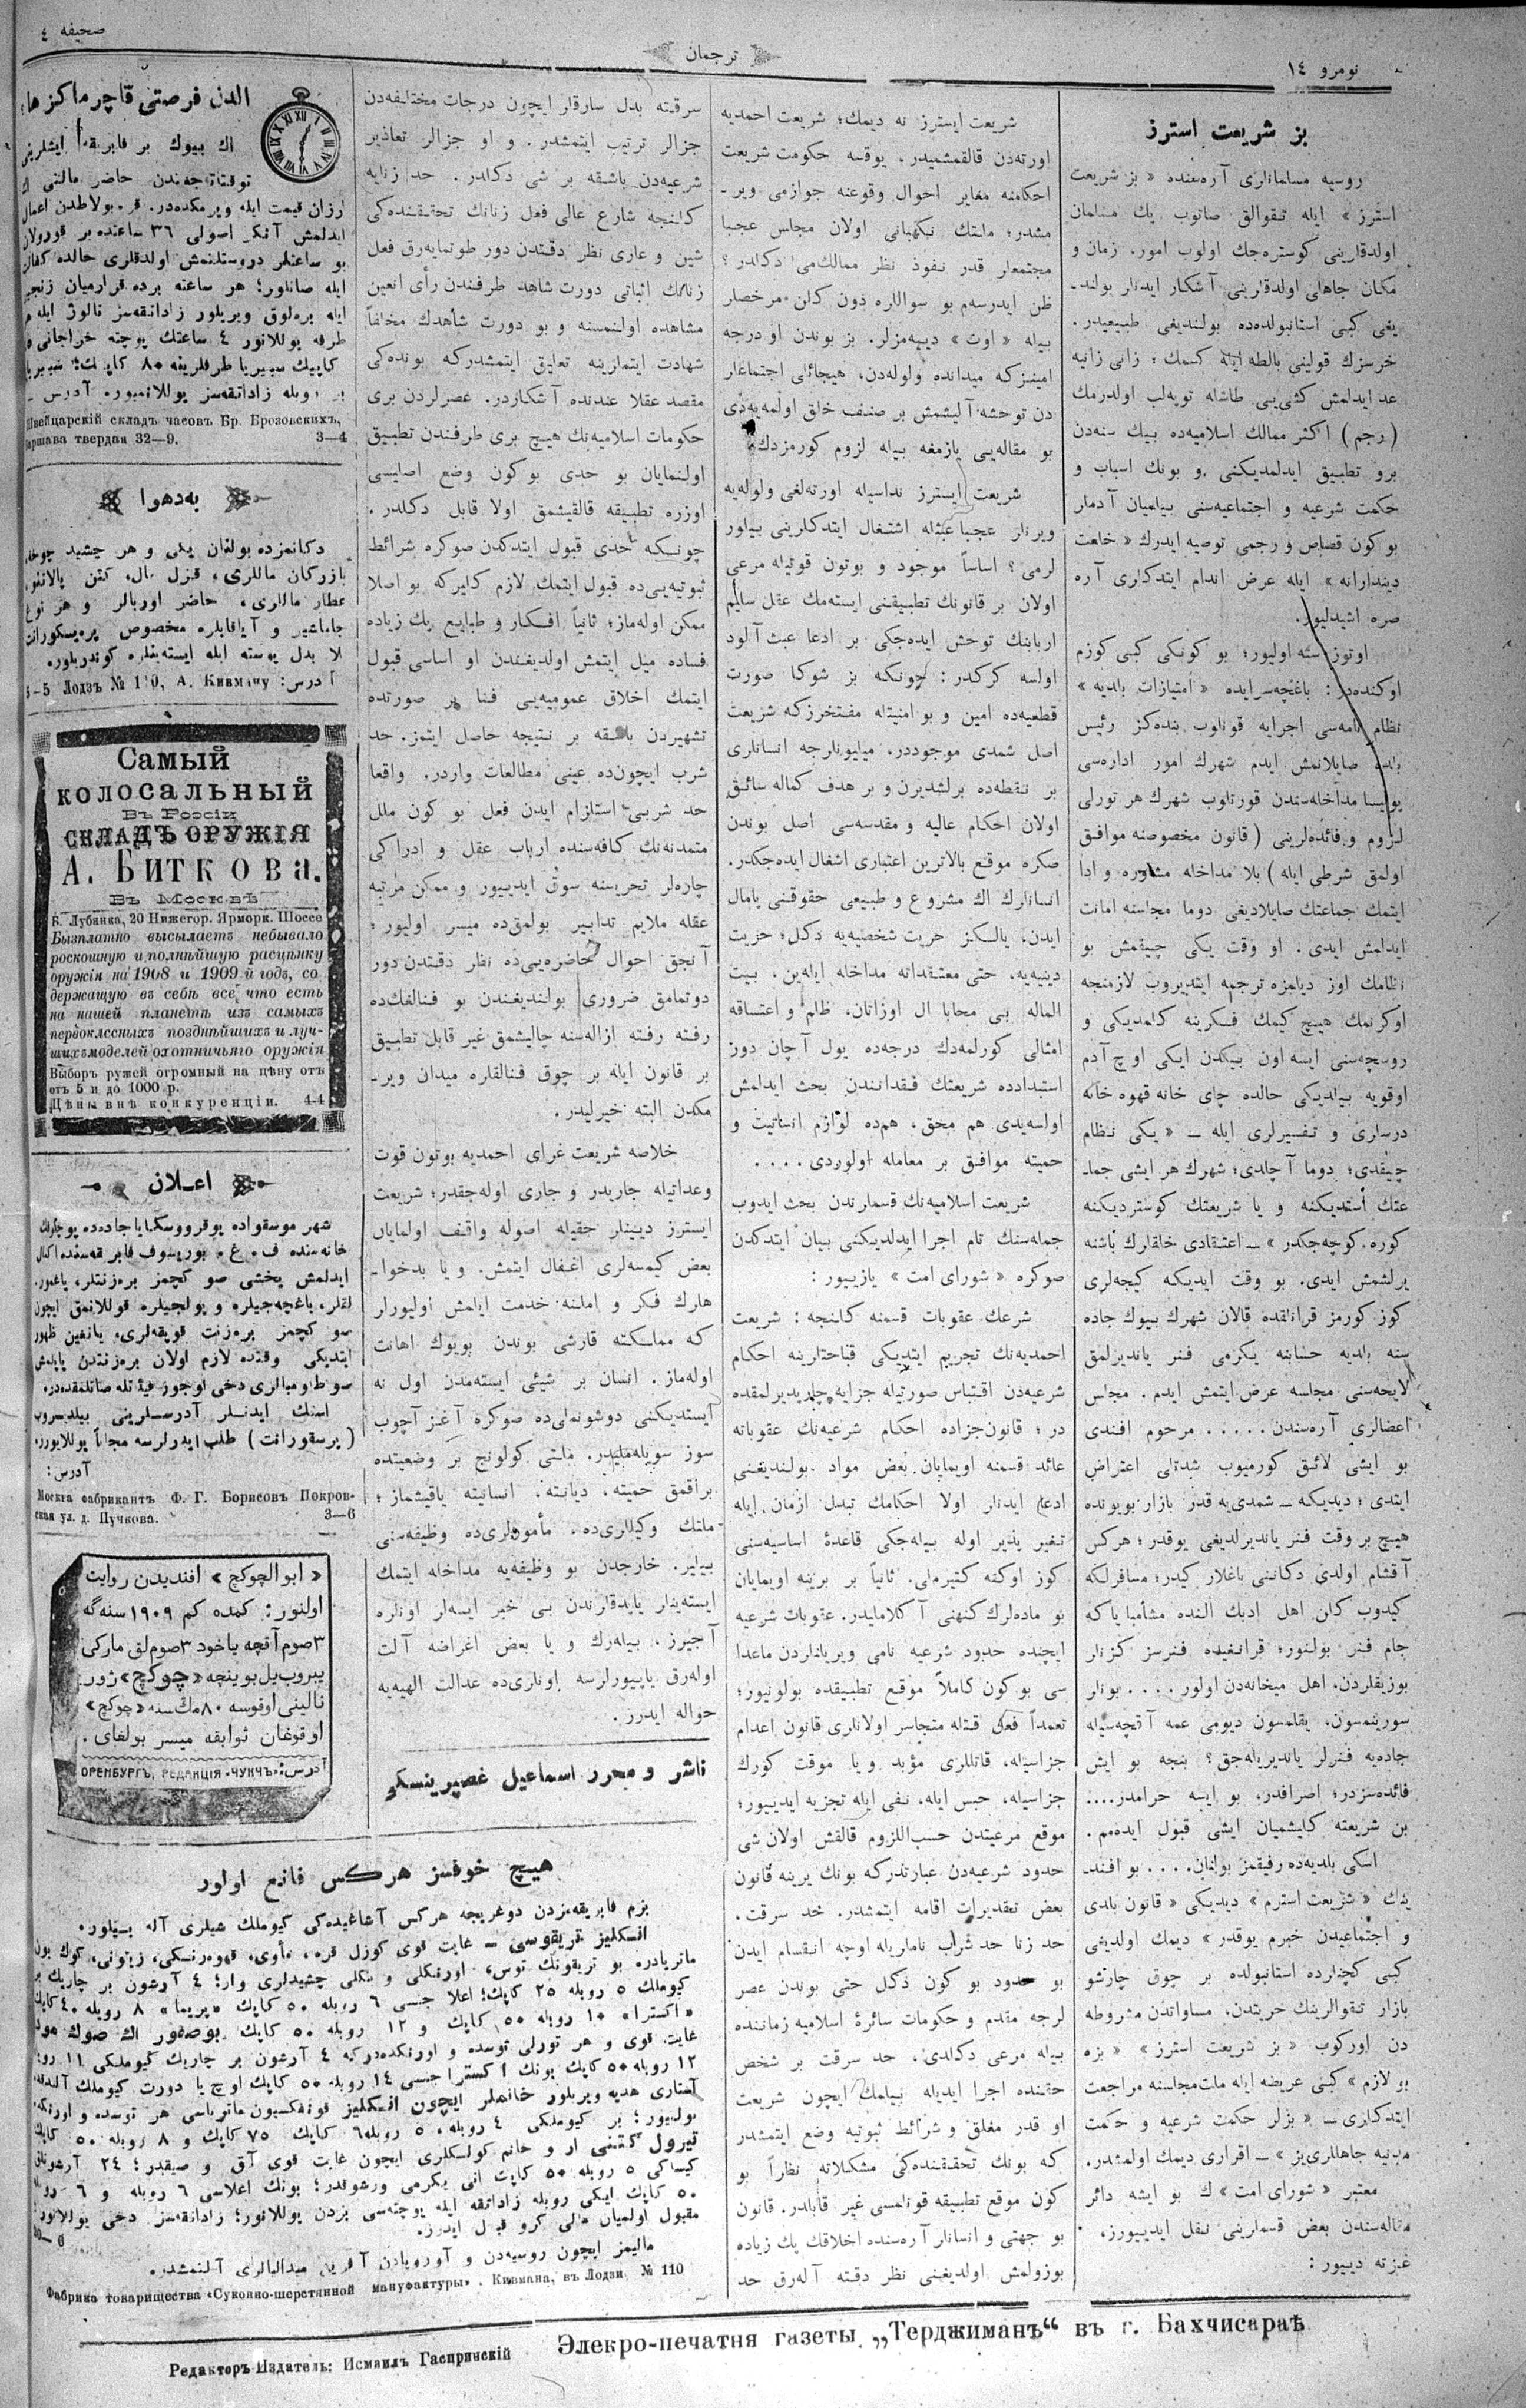 صحيفه ٤
ترجمان
نومرو ١٤
بز شريعت استرز
روسيه مسلمانلرى آره‌سنده « بز شريعت
استرز » ايله تقوالق صاتوب پك مسلمان
اولدقلرينى كوستره‌جك اولوب امور. زمان و
مكان جاهلى اولدقلرينى آشكار ايدنلر بولند-
يغى كبى استانبولده‌ده بولنديغى طبيعيدر.
خرسزك قولينى بالطه ايله كسمك ؛ زانى زانيه
عد ايدلمش كشى‌يى طاشله توپه‌لب اولدرمك
(رجم) اكثر ممالك اسلاميه‌ده بيك سنه‌دن
برو تطبيق ايدلمديكنى و بونك اسباب و
حكمت شرعيه و اجتماعيه‌سنى بيلميان آدملر
بو كون قصاص و رجمى توصيه ايدرك « خلعت
ديندارانه » ايله عرض اندام ايتدكلرى آره
صره اشيديليور.
اوتوز سنه اوليور؛ بو كونكى كبى كوزم
اوكنده‌در: باغچه‌سرايده «امتيازات بلديه»
نظامنامه‌سى اجرايه قونلوب بنده‌كز رئيس
بلده صايلانمش ايدم شهرك امور اداره‌سى
پوليسا مداخله‌سندن قورتلوب شهرك هر تورلى
لزوم و فائده‌لرينى (قانون مخصوصنه موافق
اولمق شرطى ايله) بلا مداخله مشاوره و ادا
ايتمك جماعتك صايلاديغى دوما مجلسنه امانت
ايدلمش ايدى. او وقت يكى چيقمش بو
نظامك اوز ديلمزه ترجمه ايتديروب لازمنجه
اوكرنمك هيچ كيمك فكرينه كلمديكى و
روسچه‌سنى ايسه اون بيكدن ايكى اوچ آدم
اوقويه بيلديكى حالده چاى خانه قهوه خانه
درسلرى و تفسيرلرى ايله — « يكى نظام
چيقدى؛ دوما آچلدى؛ شهرك هر ايشى جما-
عتك استديكنه و يا شريعتك كوسترديكنه
كوره كوچه‌جكدر » — اعتقادى خلقلرك باشنه
يرلشمش ايدى. بو وقت ايديكه كيجه‌لرى
كوز كورمز قراكلقده قالان شهرك بيوك جاده
سنه بلديه حسابنه يكرمى فنر يانديرلمق
لايحه‌سنى مجلسه عرض ايتمش ايدم. مجلس
اعضالرى آره‌سندن ..... مرحوم افندى
بو ايشى لائق كورميوب شدتلى اعتراض
ايتدى؛ ديديكه — شمدى‌يه قدر بازار بويونده
هيچ بر وقت فنر يانديرلديغى يوقدر؛ هركس
آقشام اولدى دكاننى باغلار كيدر؛ مسافرلكه
كيدوب كلن اهل ادبك النده مشامبا ياكه
جام فنر بولنور؛ قراكغيده فنرسز كزنلر
بوزيقلردن، اهل ميخانه‌دن اولور .... بونلر
سورينمسون، يقلمسون ديومى عمه آقچه‌سيله
جاده‌يه فنرلر يانديريله‌جق؟ بنجه بو ايش
فائده‌سزدر؛ اصرافدر، بو ايسه حرامدر....؛
بن شريعته كليشميان ايشى قبول ايده‌مم.
اسكى بلديه‌ده رفيقمز بولنان.... بو افند-
ينك « شريعت استرم » ديديكى « قانون بلدى
و اجتماعيدن خبرم يوقدر » ديمك اولديغى
كبى كچنلرده استانبولده بر چوق چارشو
بازار تقوالرينك حريتدن، مساواتدن مشروطه
دن اوركوب « بز شريعت استرز » « بزه
بو لازم » كبى عريضه ايله ملت مجلسنه مراجعت
ايتدكلرى — « بزلر حكمت شرعيه و حكمت
مدنيه جاهللرى‌يز » — اقرارى ديمك اولمشدر.
معتبر « شوراى امت » ك بو ايشه دائر
مقاله‌سندن بعض قسملرينى نقل ايدييورز،
غزته دييور:
شريعت ايسترز نه ديمك؛ شريعت احمديه
اورته‌دن قالقمشميدر، يوقسه حكومت شريعت
احكامنه مغاير احوال وقوعنه جوازمى وير-
مشدر؛ ملتك نكهبانى اولان مجلس عجبا
مجتمعلر قدر نفوذ نظر ممالك‌مى دكلدر؟
ظن ايدرسه‌م بو سواللره دون كلن مرخصلر
بيله « اوت » دييه‌مزلر. بز بوندن او درجه
امينزكه ميدانده ولوله‌دن، هيجانلى اجتماعلر
دن توحشه آليشمش بر صنف خلق اولمه‌يه‌ذى
بو مقاله‌يى يازمغه بيله لزوم كورمزدك.
شريعت ايسترز نداسيله اورته‌لغى ولوله‌يه
ويرنلر عجبا عبثله اشتغال ايتدكلرينى بيلور
لرمى؟ اساساً موجود و بوتون قوتيله مرعى
اولان بر قانونك تطبيقنى ايسته‌مك عقل سليم
اربابنك توحش ايده‌جكى بر ادعا عبث آلود
اولسه كركدر: چونكه بز شوكا صورت
قطعيه‌ده امين و بو امنيتله مفتخرزكه شريعت
اصل شمدى موجوددر، ميليونلرجه انسانلرى
بر نقطه‌ده برلشديرن و بر هدف كماله سائق
اولان احكام عاليه و مقدسه‌سى اصل بوندن
صكره موقع بالاترين اعتبارى اشغال ايده‌جكدر.
انسانلرك اك مشروع و طبيعى حقوقنى پامال
ايدن، يالكز حريت شخصيه‌يه دكل؛ حريت
دينيه‌يه، حتى معتقداته مداخله ايله‌ين، بيت
الماله بى محابا ال اوزاتان، ظلم و اعتسافه
امثالى كورلمه‌دك درجه‌ده يول آچان دور
استبدادده شريعتك فقداننـدن بحث ايدلمش
اولسه‌يدى هم محق، هم‌ده لوازم انسانيت و
حميته موافق بر معامله اولوردى....
شريعت اسلاميه‌نك قسملرندن بحث ايدوب
جمله‌سنك تام اجرا ايدلديكنى بيان ايتدكدن
صوكره « شوراى امت » يازييور:
شرعك عقوبات قسمنه كلنجه: شريعت
احمديه‌نك تحريم ايتديكى قباحتلرينه احكام
شرعيه‌دن اقتباس صورتيله جزايه چارپديرلمقده
در؛ قانون جزاده احكام شرعيه‌نك عقوباته
عائد قسمنه اويمايان بعض مواد بولنديغنى
ادعا ايدنلر اولا احكامك تبدل ازمان ايله
تغير پذير اوله بيله‌جكى قاعدهٔ اساسيه‌سنى
كوز اوكنه كتيرملى. ثانياً بر برينه اويمايان
بو ماده‌لرك كنهنى آكلامليدر. عقوبات شرعيه
ايچنده حدود شرعيه نامى ويريلنلردن ماعدا
سى بو كون كاملاً موقع تطبيقده بولونيور؛
تعمداً فعل قتله متجاسر اولانلرى قانون اعدام
جزاسيله، قاتللرى مؤبد و يا موقت كورك
جزاسيله، حبس ايله، نفى ايله تجزيه ايدييور؛
موقع مرعيتدن حسب‌اللزوم قالقش اولان شى
حدود شرعيه‌دن عبارتدركه بونك يرينه قانون
بعض تقديرات اقامه ايتمشدر. حد سرقت.
حد زنا حد شراب ناملريله اوچه انقسام ايدن
بو حدود بو كون دكل حتى بوندن عصر
لرجه مقدم و حكومات سائرهٔ اسلاميه زماننده
بيله مرعى دكلدى، حد سرقت بر شخص
حقنده اجرا ايديله بيلمك ايچون شريعت
او قدر مغلق و شرائط ثبوتيه وضع ايتمشدر
كه بونك تحققنده‌كى مشكلاته نظراً بو
كون موقع تطبيقه قونلمسى غير قابلدر. قانون
بو جهتى و انسانلر آره‌سنده اخلاقك پك زياده
بوزولمش اولديغنى نظر دقته آله‌رق حد
سرقته بدل سارقلر ايچون درجات مختلفه‌دن
جزالر ترتيب ايتمشدر. و او جزالر تعاذير
شرعيه‌دن باشقه بر شى دكلدر. حد زنايه
كلنجه شارع عالى فعل زنانك تحققنده‌كى
شين و عارى نظر دقتدن دور طوتمايه‌رق فعل
زنانك اثباتى دورت شاهد طرفندن رأى العين
مشاهده اولنمسنه و بو دورت شاهدك مخلفاً
شهادت ايتملرينه تعليق ايتمشدركه بونده‌كى
مقصد عقلا عندنده آشكاردر. عصرلردن برى
حكومات اسلاميه‌نك هيچ برى طرفندن تطبيق
اولنمايان بو حدى بو كون وضع اصليسى
اوزره تطبيقه قالقيشمق اولا قابل دكلدر.
چونكه حدى قبول ايتدكدن صوكره شرائط
ثبوتيه‌يى‌ده قبول ايتمك لازم كليركه بو اصلا
ممكن اوله‌ماز؛ ثانياً افكار و طبايع پك زياده
فساده ميل ايتمش اولديغندن او اساسى قبول
ايتمك اخلاق عموميه‌يى فنا بر صورتده
تشهيردن باشقه بر نتيجه حاصل ايتمز. حد
شرب ايچون‌ده عينى مطالعات واردر. واقعا
حد شربى استلزام ايدن فعل بو كون ملل
متمدنه‌نك كافه‌سنده ارباب عقل و ادراكى
چاره‌لر تحريسنه سوق ايدييور و ممكن مرتبه
عقله ملايم تدابير بولمق‌ده ميسر اوليور؛
آنجق احوال حاضره‌يى‌ده نظر دقتدن دور
دوتمامق ضرورى بولنديغندن بو فنالغك‌ده
رفته رفته ازاله‌سنه چاليشمق غير قابل تطبيق
بر قانون ايله بر چوق فنالقلره ميدان وير-
مكدن البته خيرليدر.
خلاصه شريعت غراى احمديه بوتون قوت
وعدالتيله جاريدر و جارى اوله‌جقدر؛ شريعت
ايسترز ديينلر حقيله اصوله واقف اولمايان
بعض كيمسه‌لرى اغفال ايتمش. و يا بدخوا-
هلرك فكر و املنه خدمت ايلمش اوليورلر
كه مملكته قارشى بوندن بويوك اهانت
اوله‌ماز. انسان بر شيئى ايسته‌مدن اول نه
ايستديكنى دوشونملى‌ده صوكره آغيز آچوب
سوز سويله‌مليدر. ملتى كولونج بر وضعيتده
براقمق حميته، ديانته، انسانيته ياقيشماز؛
ملتك وكيللرى‌ده. مأمورلرى‌ده وظيفه‌سنى
بيلير. خارجدن بو وظيفه‌يه مداخله ايتمك
ايسته‌ينلر ياپدقلرندن بى خبر ايسه‌لر اونلره
آجيرز. بيله‌رك و يا بعض اغراضه آلت
اوله‌رق ياپييورلرسه اونلرى‌ده عدالت الهيه‌يه
حواله ايدرز.
ناشر و محرر اسماعيل غصپرينسكى
الدن فرصتى قاچرماكز ها؛
اك بيوك بر فابريقه‌نڭ ايشلرينى
توقتاتجه‌ندن حاضر مالنى ك
ارزان قيمت ايله ويرمكده‌در. قره بولاطدن اعمال
ايدلمش آنكر اصولى ٣٦ ساعتده بر قورولان
بو ساعتلر دروستلنمش اولدقلرى حالده كفالت
ايله صاتلور؛ هر ساعته برده قرارميان زنجير
ايله بره‌لوق ويريلور زاداتقه‌سز نالوژ ايله هر
طرفه يوللانور ٤ ساعتك پوچته خراجاتى
كاپيك سيبريا طرفلرينه ٨٠ كاپيك؛ سيبريا
بر روبله زاداتقه‌سز يوللانميور. آدرس -
Швейцарскій складъ часовъ Бр. Брозовскихъ,
Варшава твердая 32—9. 3—4
به‌دهوا
دكانمزده بولغان يكى و هر چشيد چوخه
بازركان ماللرى، قزل مال، كتن پالاتنو،
عطار ماللرى، حاضر اوربالر و هر نوع
جاماشير و آياقابلره مخصوص پره‌يسكورانت
لا بدل پوسته ايله ايسته‌يڭلره كوندريلوره
آدرس: Лодзь № 110, А. Кивману 3—5
Самый
колосальный
Въ Россіи
СКЛАДЪ ОРУЖІЯ
А. Биткова.
Въ Москвѣ
Б. Лубянка, 20 Нижегор. Ярморк. Шоссе
Бызплатно высылаетъ небывало
роскошную и полнѣйшую расцѣнку
оружія на 1908 и 1909 й годъ, со
держащую въ себѣ все, что есть
на нашей планетѣ изъ самыхъ
первоклссныхъ позднѣйшихъ и луч-
шихъ моделей охотничьяго оружія
Выборъ ружей огромный на цѣну отъ
отъ 5 и до 1000 р.
Цѣны внѣ конкуренціи. 4-4
اعـلان
شهر موسقواده پوقرووسكايا جاده‌ده پوچكوف
خانه‌سنده ف. غ. بوريسوف فابريقه‌سنده اكمال
ايدلمش يخشى صو كچمز بره‌زنتلر، ياغمور-
لقلر، باغچه‌جيلره و يولجيلره قوللانمق ايچون
صو كچمز بره‌زنت قوپقه‌لرى، يانغين ظهور
ايتديكى وقتده لازم اولان بره‌زنتدن ياپلمش
صو طاومبالرى دخى اوجوز فيئتله صاتلمقده‌در.
استك ايدنلر آدرسلرينى بيلديروب
(پرسقورانت) طلب ايدرلرسه مجاناً يوللايورز.
آدرس:
Москва фабрикантъ Ф. Г. Борисовъ Покров-
ская ул. д. Пучкова. 3—6
« ابو الچوكچ » افنديدن روايت
اولنور: كمده كم ١٩٠٩ سنه‌گه
٣ صوم آقچه ياخود ٣ صوملق ماركى
يبروب يل بوينچه «چوكچ» ژور-
نالينى اوقوسه ٨٠ مڭ سنه «چوكچ»
اوقوغان ثوابقه ميسر بولغاى.
آدرس: ОРЕНБУРГЪ, РЕДАКЦІЯ «ЧУКЧЪ»
هيچ خوفسز هركس قانع اولور
بزم فابريقه‌مزدن دوغريجه هركس آشاغيده‌كى كيوملك شيلرى آله بيلور.
انكليز تريقوسى — غايت قوى كوزل قره، مأوى، قهوه‌رنسكى، زيتونى، كوك بون
ماتريادر. بو تريقونك توس، اورنكلى و ينكلى چشيدلرى وار؛ ٤ آرشون بر چاريك بر
كيوملك ٥ روبله ٢٥ كاپك؛ اعلا جنسى ٦ روبله ٥٠ كاپك «پريما» ٨ روبله ٤٠ كاپك
«اكسترا» ١٠ روبله ٥٠ كاپك و ١٢ روبله ٥٠ كاپك. بوصطور اڭ صوڭ مود
غايت قوى و هر تورلى توسده و اورنكده‌دركه ٤ آرشون بر چاريك كيوملكى ١١ روبله
١٢ روبله ٥٠ كاپك بونك اكسترا جنسى ١٤ روبله ٥٠ كاپك اوچ يا دورت كيوملك آلندقده
آستارى هديه ويريلور خانملر ايچون انكليز قونفكسيون ماترياسى هر توسده و اورنكده
بولنيور؛ بر كيوملكى ٤ روبله، ٥ روبله ٦ كاپك ٧٥ كاپك و ٨ روبله ٥٠ كاپك
تيرول كتنى ار و خانم كولمكلرى ايچون غايت قوى آق و صيقدر؛ ٢٤ آرشونلق
كيساكى ٥ روبله ٥٠ كاپك انى يكرمى ورشوقدر؛ بونك اعلاسى ٦ روبله و ٦ روبله
٥٠ كاپك ايكى روبله زاداتقه ايله پوچته‌سى بزدن يوللانور؛ زاداتقه‌سز دخى يوللانور؛
مقبول اولميان مالى كرو قبول ايدرز. 20—6
ماليمز ايچون روسيه‌دن و آوروپادن آفرين ميداليالرى آلنمشدر.
Фабрика товарищества «Суконно-шерстянной мануфактуры». Кивмана, въ Лодзи, № 110
Элекро-печатня газеты „Терджиманъ“ въ г. Бахчисараѣ
Редакторъ-Издатель: Исмаилъ Гаспринскій